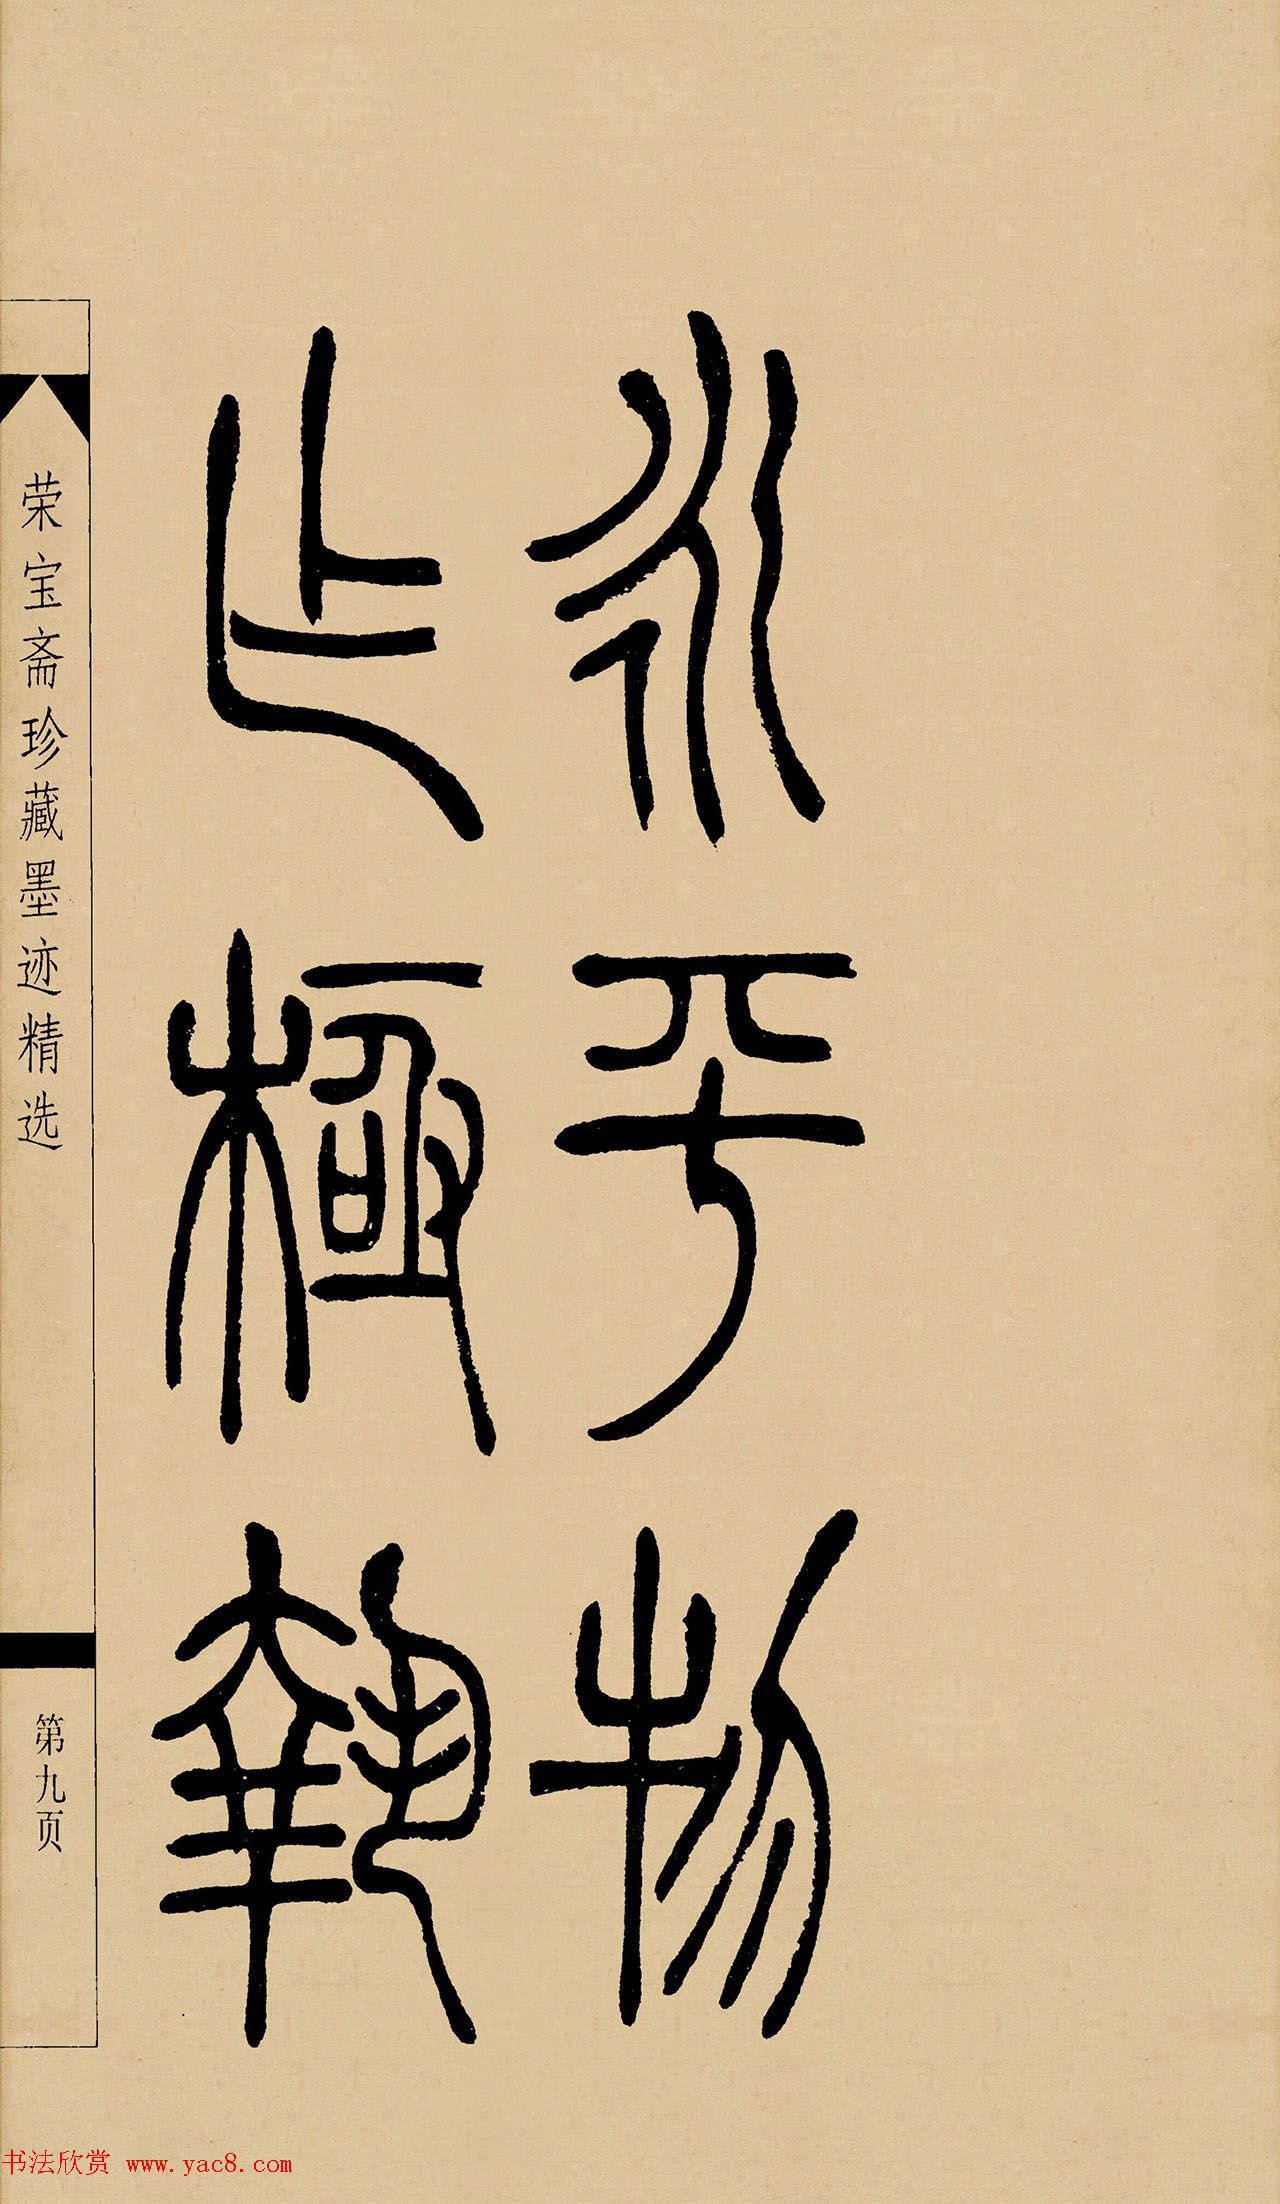 永平物
止極執
荣宝斋珍藏墨迹精选
第九页
书法欣赏 www.yac8.com